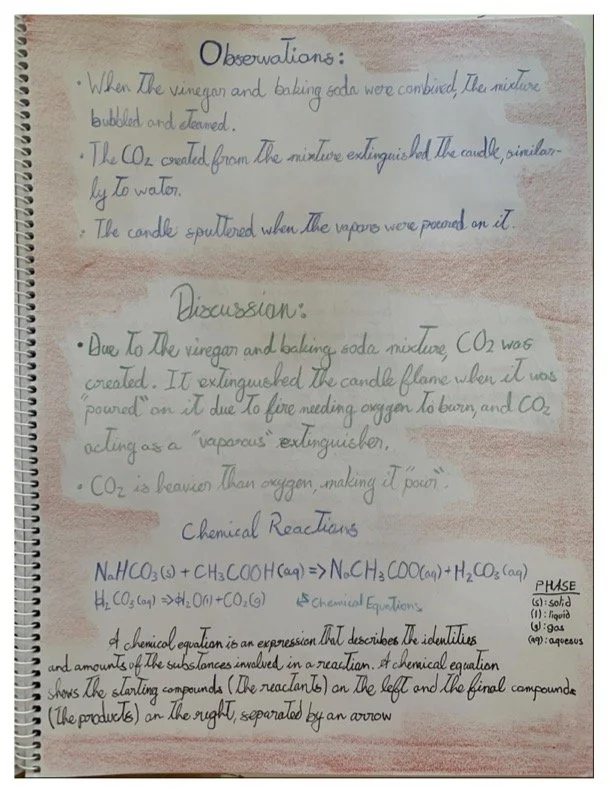 Observations:
· When the vinegar and baking soda were combined, the mixture
bubbled and steamed.
· The CO2 created from the mixture extinguished the candle, similar-
ly to water.
· The candle sputtered when the vapors were poured on it.
Discussion:
· Due to the vinegar and baking soda mixture, CO2 was
created. It extinguished the candle flame when it was
"poured" on it due to fire needing oxygen to burn, and CO2
acting as a "vaporous" extinguisher.
· CO2 is heavier than oxygen, making it "pour".
Chemical Reactions
NaHCO3(s) + CH3COOH(aq) => NaCH3COO(aq) + H2CO3(aq)
H2CO3(aq) => H2O(l) + CO2(g)
Chemical Equations
PHASE
(s): solid
(l): liquid
(g): gas
(aq): aqueous
A chemical equation is an expression that describes the identities
and amounts of the substances involved in a reaction. A chemical equation
shows the starting compounds (the reactants) on the left and the final compounds
(the products) on the right, separated by an arrow